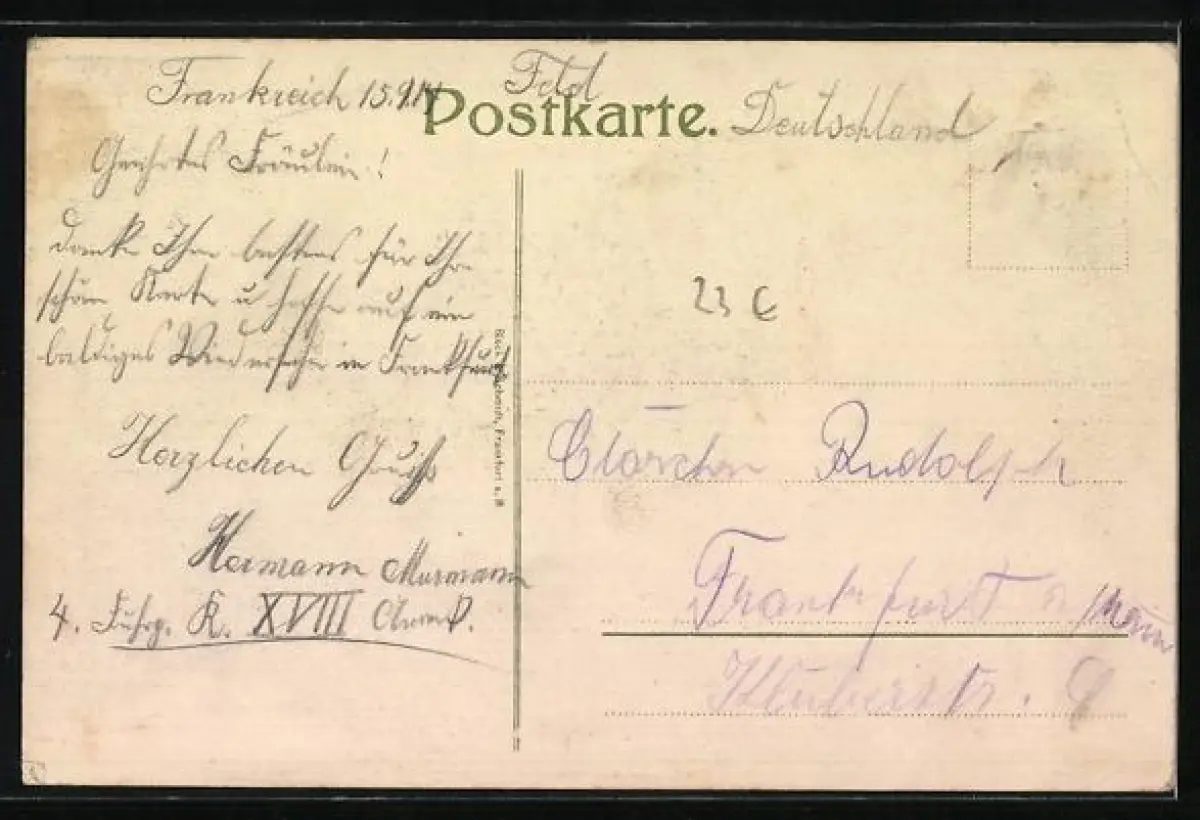 Frankreich 15.9.14
Feld
Postkarte.
Deutschland
Geehrtes Fräulein!
danke Ihn bestens für Ihre
schöne Karte u hoffe auf ein
baldiges Wiedersehen in Frankfurt
Herzlichen Gruß
Hermann Murmann
4. Fuhrp. K. XVIII Armee
23 €
Clärchen Rudolph
Frankfurt a/Main
9
Frankfurt a. M